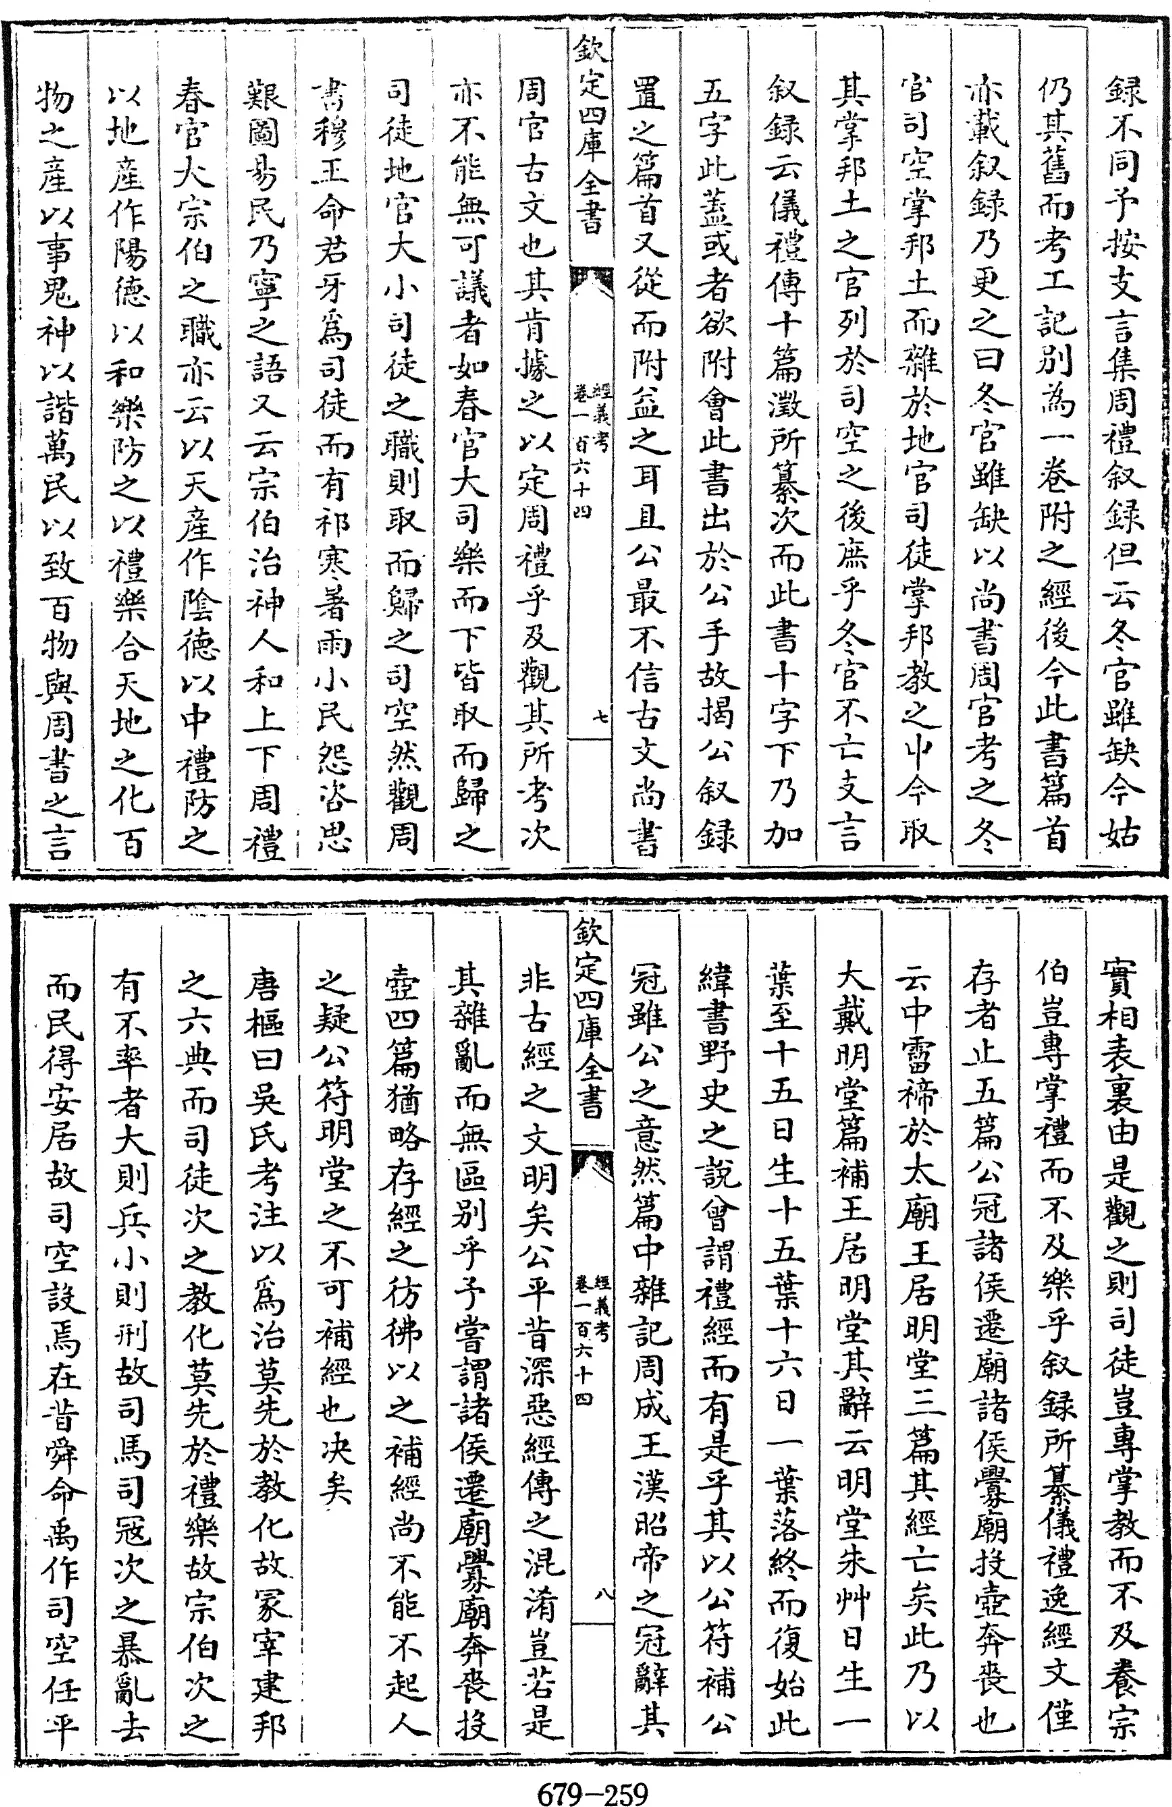 録不同予按支言集周禮叙録但云冬官雖缺今姑
仍其舊而考工記别為一巻附之經後今此書篇首
亦載叙録乃更之曰冬官雖缺以尚書周官考之冬
官司空掌邦土而雜於地官司徒掌邦教之中今取
其掌邦土之官列於司空之後庶乎冬官不亡支言
叙録云儀禮傳十篇澂所纂次而此書十字下乃加
五字此蓋或者欲附會此書出於公手故揭公叙録
置之篇首又從而附益之耳且公最不信古文尚書
欽定四庫全書
經義考
卷一百六十四
七
周官古文也其肯據之以定周禮乎及觀其所考次
亦不能無可議者如春官大司樂而下皆取而歸之
司徒地官大小司徒之職則取而歸之司空然觀周
書穆王命君牙爲司徒而有祁寒暑雨小民怨咨思
艱圖易民乃寧之語又云宗伯治神人和上下周禮
春官大宗伯之職亦云以天產作陰德以中禮防之
以地產作陽徳以和樂防之以禮樂合天地之化百
物之產以事鬼神以諧萬民以致百物與周書之言
實相表裏由是觀之則司徒豈專掌教而不及養宗
伯豈專掌禮而不及樂乎叙録所纂儀禮逸經文僅
存者止五篇公冠諸侯遷廟諸侯釁廟投壺奔喪也
云中霤禘於太廟王居明堂三篇其經亡矣此乃以
大戴明堂篇補王居明堂其辭云明堂朱艸日生一
葉至十五日生十五葉十六日一葉落終而復始此
緯書野史之説曾謂禮經而有是乎其以公符補公
冠雖公之意然篇中雜記周成王漢昭帝之冠辭其
欽定四庫全書
經義考
卷一百六十四
八
非古經之文明矣公平昔深惡經傳之混淆豈若是
其雜亂而無區别乎予嘗謂諸侯遷廟釁廟奔喪投
壺四篇猶略存經之彷彿以之補經尚不能不起人
之疑公符明堂之不可補經也决矣
唐樞曰吳氏考注以爲治莫先於教化故冢宰建邦
之六典而司徒次之教化莫先於禮樂故宗伯次之
有不率者大則兵小則刑故司馬司冦次之暴亂去
而民得安居故司空設焉在昔舜命禹作司空任平
679-259